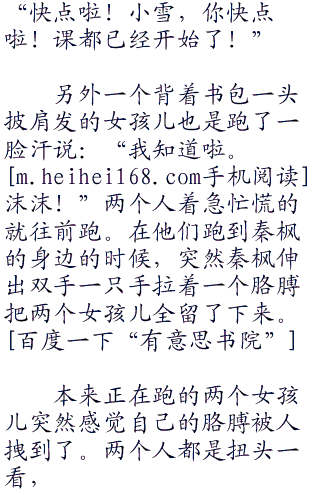 “快点啦！小雪，你快点
啦！课都已经开始了！”
另外一个背着书包一头
披肩发的女孩儿也是跑了一
脸汗说：“我知道啦。
[m.heihei168.com手机阅读]
沫沫！”两个人着急忙慌的
就往前跑。在他们跑到秦枫
的身边的时候，突然秦枫伸
出双手一只手拉着一个胳膊
把两个女孩儿全留了下来。
[百度一下“有意思书院”]
本来正在跑的两个女孩
儿突然感觉自己的胳膊被人
拽到了。两个人都是扭头一
看，